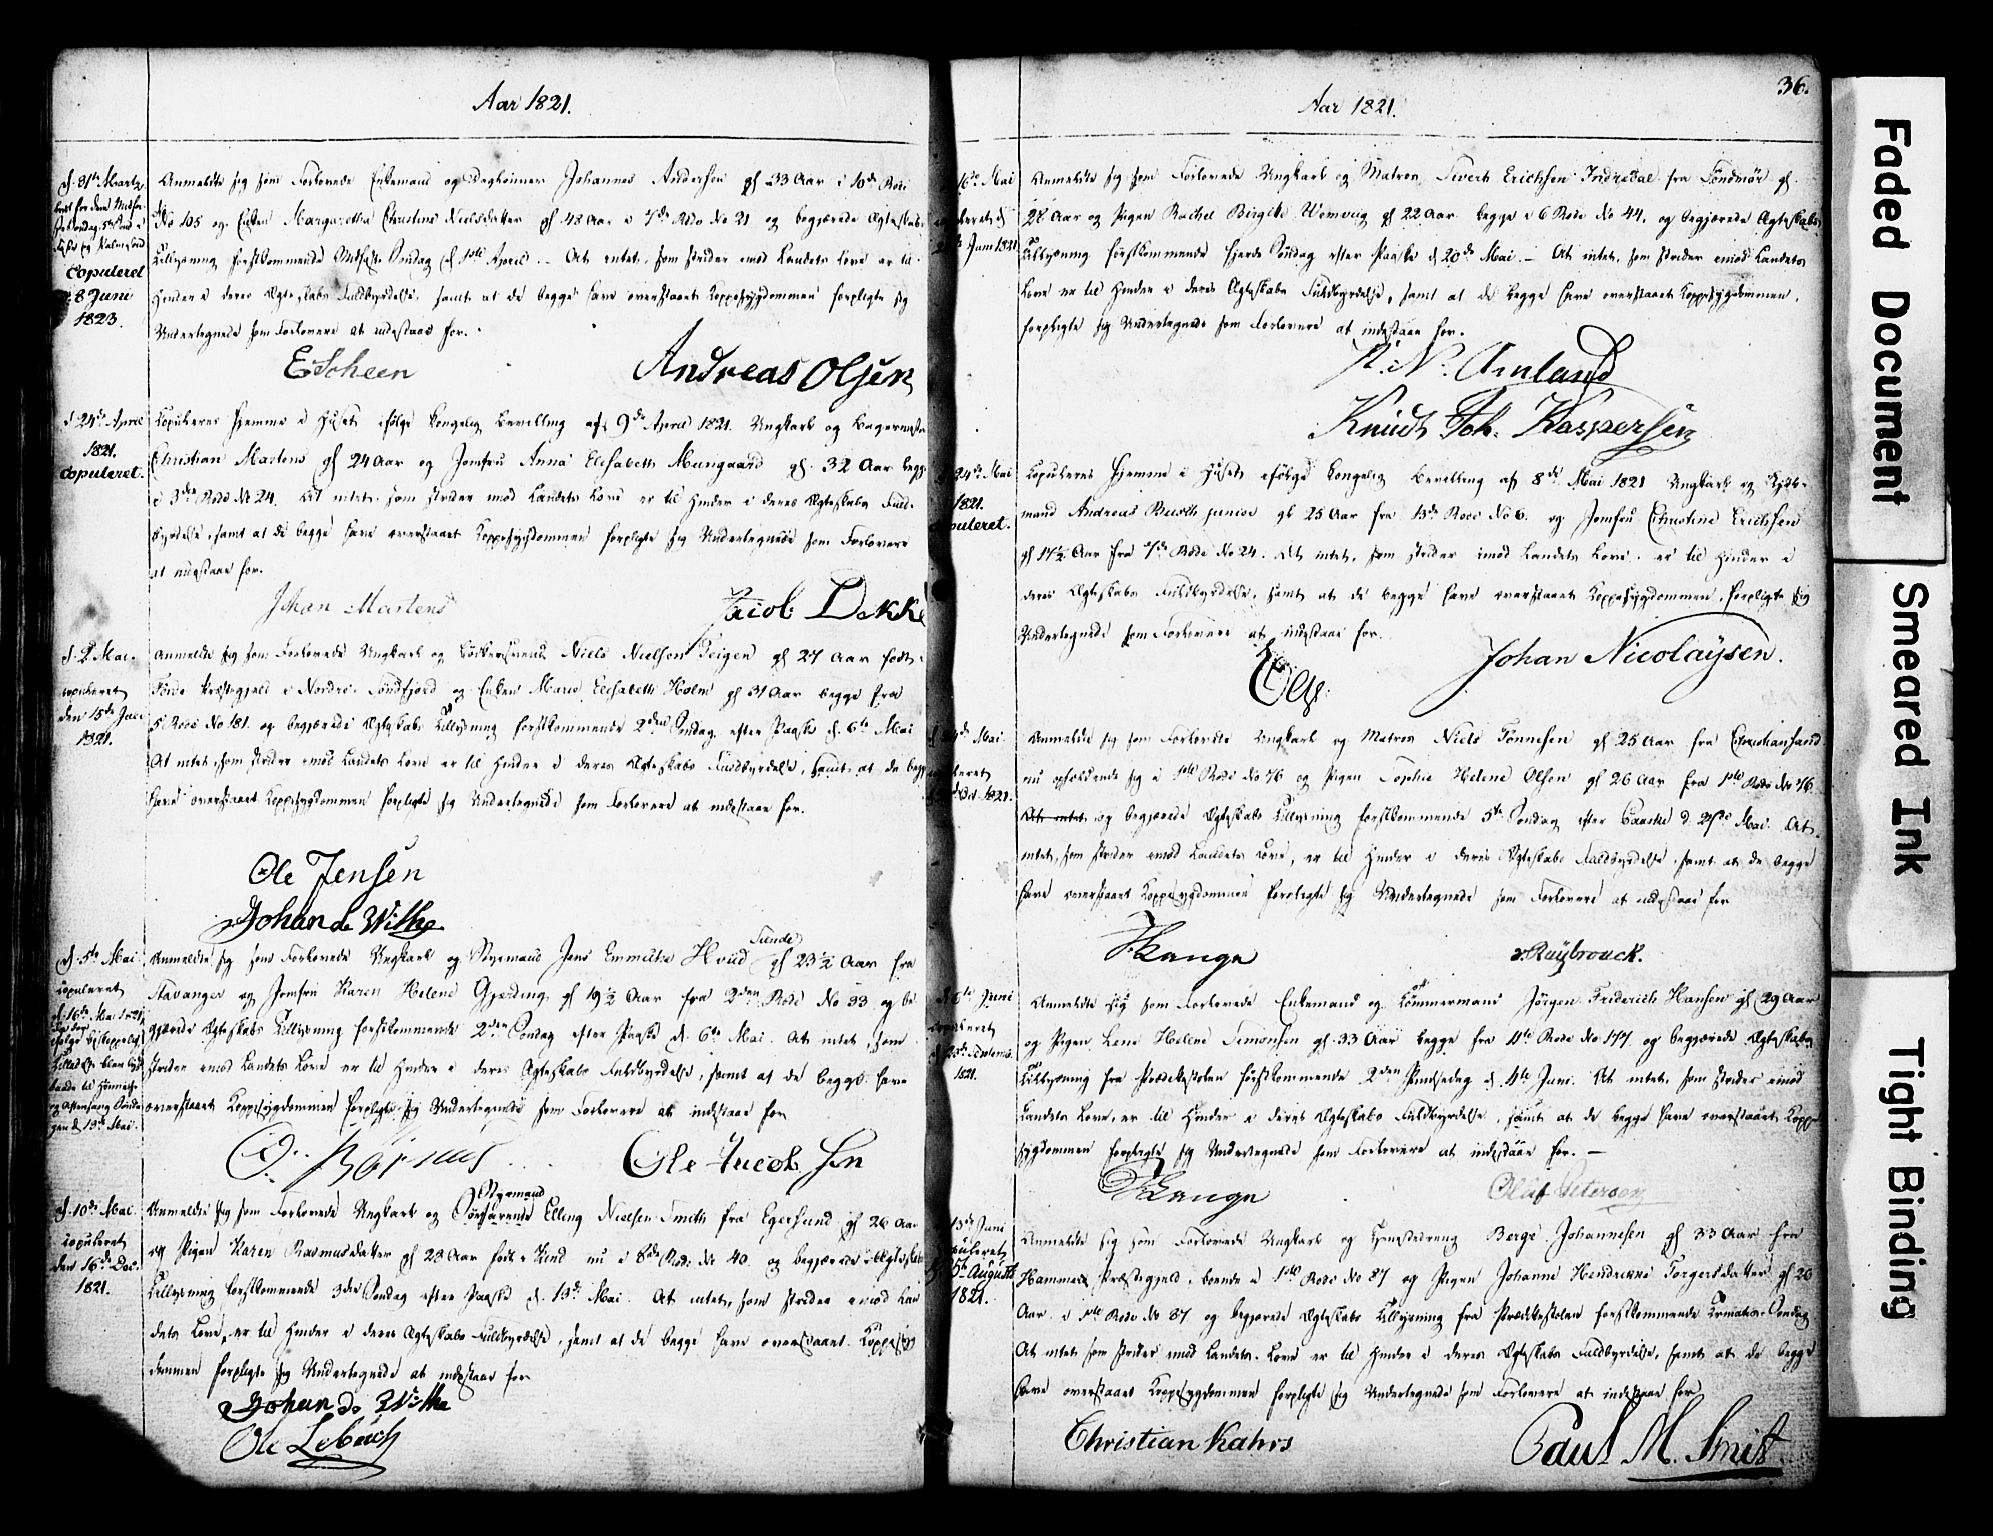 Aar 1821.
d. 31te Martz
Copuleret
8 Juni
1823.
Anmeldte sig som Forlovede Enkemand og Johannes Andersen gl 33 Aar i 10de Rode
No 105 og Enken Margaretha Christens Nielsdatter gl 48 Aar i 7de Rode No 21 og begjærede Ægteskabs
Tillysning førstkommende Søndag d. 1ste April. At intet, som strider imod Landets Love er til
Hinder i deres Ægteskabs Fuldbyrdelse, samt at de begge have overstaaet Koppesygdommen forpligte sig
Undertegnede som Forlovere at indestaae for.
E Scheen
Andreas Olsen
d 24de April
1821.
Copuleret.
Copuleres hjemme i Huset ifølge kongelig Bevilling af 9de April 1821. Ungkarl og Bagersvend
Christian Martens gl 24 Aar og Jomfru Anna Elisabeth Mungaard gl. 32 Aar begge
i 3de Rode No 24. At intet som strider imod Landets Love er til Hinder i deres Ægteskabs Fuld-
byrdelse, samt at de begge have overstaaet Koppesygdommen forpligte sig Undertegnede som Forlovere
at indestaae for.
Johan Martens
Jacob Dekke
d. 2 Mai.
copuleret
den 15de Juli
1821.
Anmeldte sig som Forlovede Ungkarl og Niels Nielsen Teigen gl 27 Aar født
Præstegjeld i Nordre Søndfjord og Enken Maren Elisabeth Holm gl 31 Aar begge fra
5 Rode No 181. og begjærede Ægteskabs Tillysning førstkommende 2den Søndag efter Paaske d. 6te Mai
At intet, som strider imod Landets Love er til Hinder i deres Ægteskabs Fuldbyrdelse, samt at de begge
have overstaaet Koppesygdommen forpligte sig Undertegnede som Forlovere at indestaae for.
Ole Jensen
Johan de Withe
d. 5te Mai
copuleret
d. 16de Mai 1821
Anmeldte sig som Forlovede Ungkarl og Styrmand Jens Emmicke Hviid Tiende gl 23½ Aar fra
Stavanger og Jomfru Karen Helene Gjerding gl 19½ Aar fra 2den Rode No 33 og be
gjærede Ægteskabs Tillysning førstkommende 2den Søndag efter Paaske d. 6te Mai. At intet, som
strider imod Landets Love er til Hinder i deres Ægteskabs Fuldbyrdelse, samt at de begge have
overstaaet Koppesygdommen forpligte sig Undertegnede som Forlovere at indestaae for
Ole Jacobsen
d. 10de Mai.
copuleret
den 16de Dec.
1821.
Styrmand
Anmeldte sig som Forlovede Ungkarl og Søefarende Elling Nielsen Smith fra Egersund gl 26 Aar
og Pigen Karen Rasmusdatter gl 23 Aar født i Kind nu i 8de Rode No 40 og begjærede Ægteskabs
Tillysning førstkommende 3de Søndag efter Paaske d. 13de Mai. At intet, som strider imod Lan
dets Love, er til Hinder i deres Ægteskabs Fuldbyrdelse, samt at de begge have overstaaet Koppesyg
dommen forpligte sig Undertegnede at indestaae for
Johan de Withe
Ole Lebach
36.
Aar 1821.
16de Mai
Juni 1821
Anmeldte sig som Forlovede Ungkarl og Matros Sivert Erichsen Indredal fra Søndmør gl.
28 Aar og Pigen Rachel Birgitte Wemvig gl 22 Aar begge i 6 Rode No 44, og begjærede Ægteskabs
Tillysning førstkommende fjerde Søndag efter Paaske d 20de Mai. At intet, som strider imod Landets
Love er til Hinder i deres Ægteskabs Fuldbyrdelse, samt at de begge have overstaaet Koppesygdommen,
forpligte sig Undertegnede som Forlovere at indestaae for.
N. Amland
Knudt Joh. Kaspersen
24de Mai
1821.
Copuleret.
Copuleres hjemme i Huset ifølge kongelig Bevilling af 8de Mai 1821 Ungkarl og Kjøb-
mand Andreas Buoth junior gl 25 Aar fra 13de Rode No 6. og Jomfru Christine Erichsen
gl 17½ Aar fra 7de Rode No 24. At intet, som strider imod Landets Love er til Hinder i
deres Ægteskabs Fuldbyrdelse, samt at de begge have overstaaet Koppesygdommen, forpligte sig
Undertegnede som Forlovere at indestaae for.
Johan Nicolaysen.
Mai
1821.
Anmeldte sig som Forlovede Ungkarl og Matros Niels Tønnesen gl 25 Aar fra Christiansand
nu opholdende sig i 1ste Rode No 76 og Pigen Sophie Helene Olsen gl 26 Aar fra 1ste Rode No 76
At intet og begjærede Ægteskabs Tillysning førstkommende 5te Søndag efter Paaske d. 27de Mai. At
intet, som strider imod Landets Love, er til Hinder i deres Ægteskabs Fuldbyrdelse samt at de begge
have overstaaet Koppesygdommen forpligte sig Undertegnede som Forlovere at indestaae for
Lange
v. Ruybrouck.
Juni
copuleret
1821.
Anmeldte sig som Forlovede Enkemand og Tømmermand Jørgen Friderich Hansen gl 29 Aar
og Pigen Lene Helene Simonsen gl. 33 Aar begge fra 11te Rode No 177 og begjærede Ægteskabs
Tillysning fra Prædikestolen førstkommende 2den Pindsedag d. 4te Juni. At intet, som strider imod
Landets Love, er til Hinder i deres Ægteskabs Fuldbyrdelse, samt at de begge have overstaaet Koppe
sygdommen forpligte sig Undertegnede som Forlovere at indestaae for.
Lange
Oluf Peterson
13de Juni
copuleret
5te Augusti
1821.
Anmeldte sig som Forlovede Ungkarl og Tjenestedreng Berge Johannesen gl 33 Aar fra
Hammers Præstegjeld, boende i 1ste Rode No 87 og Pigen Johanne Hendrikke Torgersdatter gl 26
Aar i 1ste Rode No 87 og begjærede Ægteskabs Tillysning fra Prædikestolen førstkommende Trinitatis Søndag
At intet som strider imod Landets Love er til Hinder i deres Ægteskabs Fuldbyrdelse, samt at de begge
have overstaaet Koppesygdommen forpligte sig Undertegnede som Forlovere at indestaae for
Christian Kahrs
Paul M. Smit
Faded Document
Smeared Ink
Tight Binding